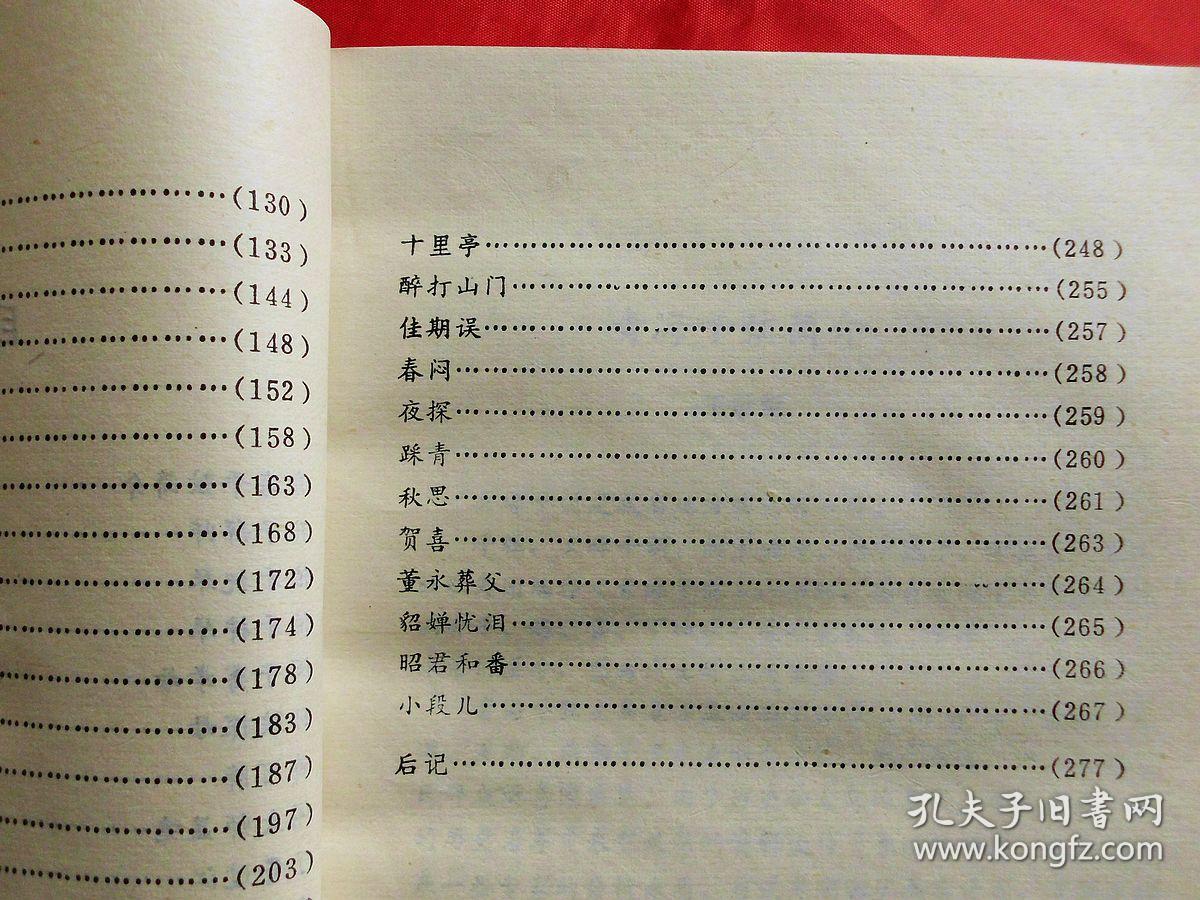 ……(130)
……(133)
……(144)
……(148)
……(152)
……(158)
……(163)
……(168)
……(172)
……(174)
……(178)
……(183)
……(187)
……(197)
……(203)
十里亭……(248)
醉打山门……(255)
佳期误……(257)
春闷……(258)
夜探……(259)
踩青……(260)
秋思……(261)
贺喜……(263)
董永葬父……(264)
貂婵忧泪……(265)
昭君和番……(266)
小段儿……(267)
后记……(277)
孔夫子旧书网
www.kongfz.com